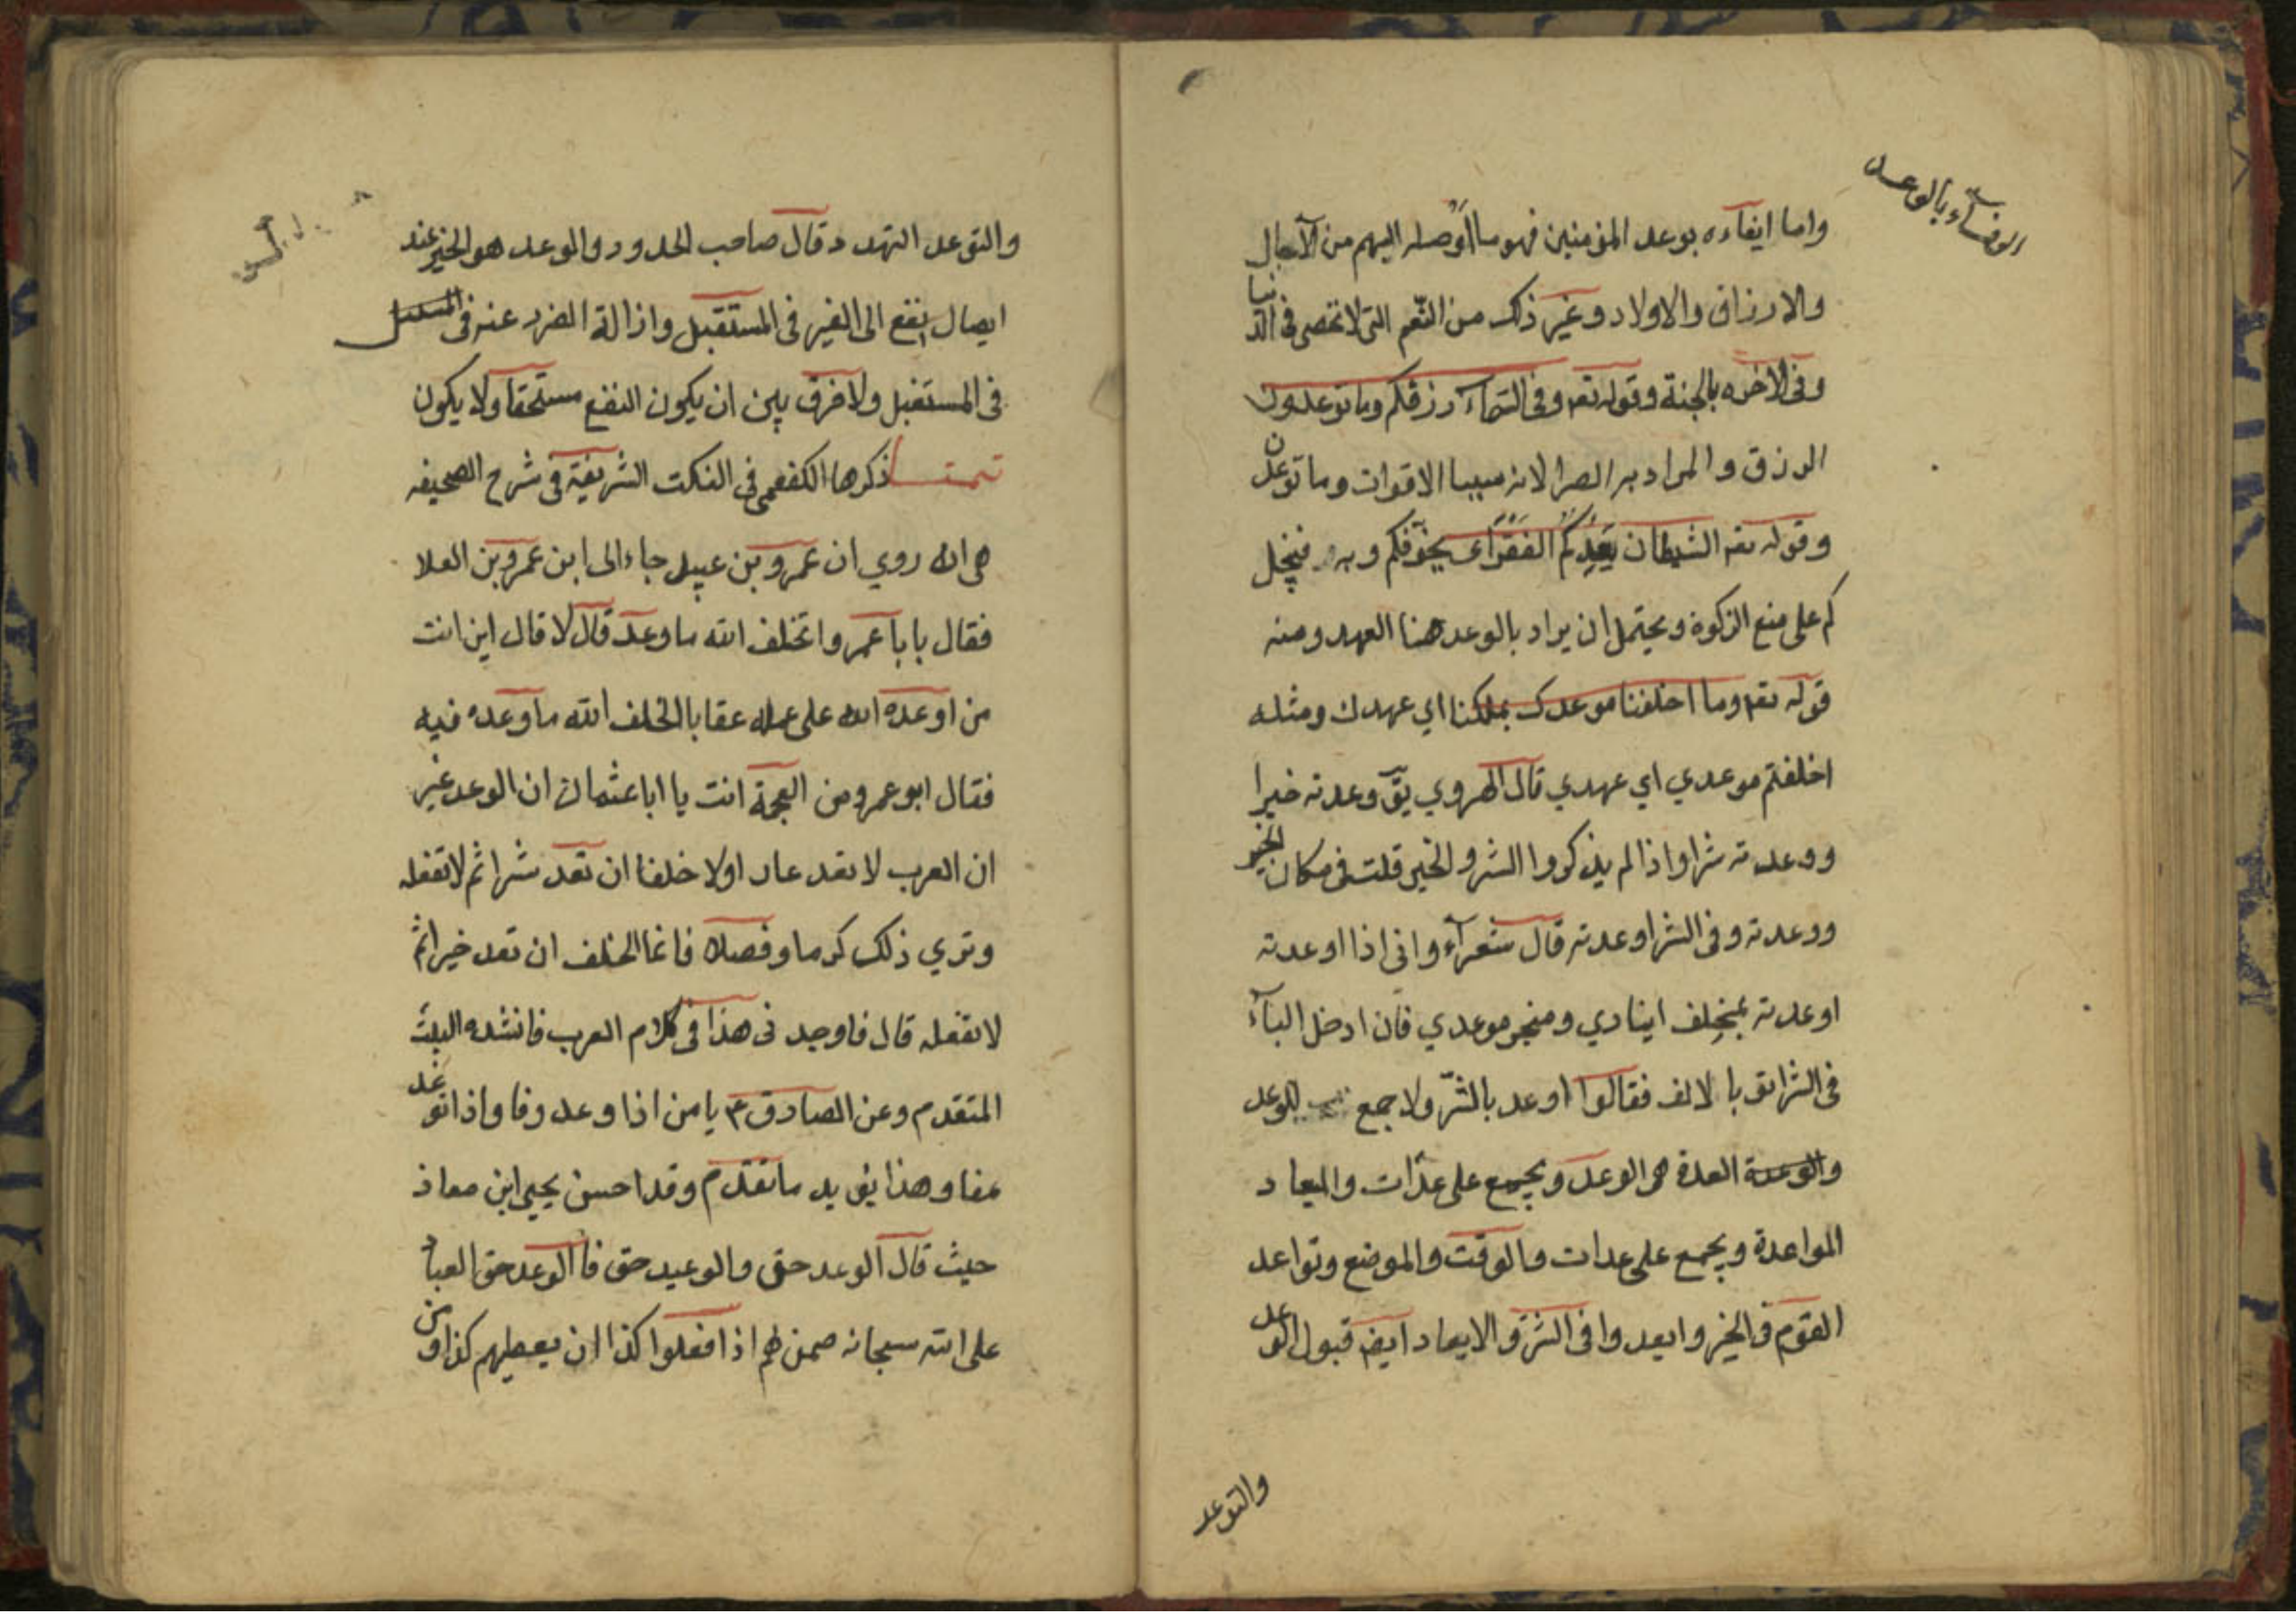 الوفاء بالوعد
واما ايفاءه بوعد المؤمنين فهو ما اوصله اليهم من الآجال
والارزاق والاولاد وغير ذلك من النّعم التى لا تحصى فى الدنيا
وفى الاخره بالجنة وقوله تعه وفى السّماء رزقكم وما توعدون
الرزق والمراد به لانه سببا الاقوات وما توعدون
وقوله تعه الشيطان يَعِدِكُم الفَقْرَاى يخوّفكم وبه فيخل
كم على منع الزكوة ويحتمل ان يراد بالوعد هنا العهد ومنه
قوله تعه وما اخلفنا موعدك بملكنا اي عهدك ومثله
اخلفتم موعدي اي عهدي قال الهروي يقّ وعدته خيرا
ووعدته شرا واذا لم يذكروا الشر والخير قلت فى مكان الخير
ووعدته وفى الشر اوعدته قال شعرآء وانى اذا اوعدته
اوعدته بمخلِف اينادي ومنجر موعدي فان ادخل البآء
فى الشر اتو با لالف فقالوا اوعد بالشّر ولا جمع للوعد
والوعدة العدة هى الوعد ويجمع على عدّات والميعاد
المواعدة ويجمع على عدات والوقت والموضع وتواعد
القوم فى الخير وايعدوا فى الشرّ والايعاد ايضه قبول الوعد
والتوعد
والتوعد التهدد قال صاحب الحدود والوعد هو الخبر عند
ايصال نفع الى الغير فى المستقبل وازالة الضرر عنه فى
فى المستقبل ولا فرق بين ان يكون النفع مستحقا ولا يكون
تتمة ذكرها الكفعمى فى النكت الشريفة فى شرح الصحيفه
هى انه روي ان عمرو بن عبيد جاء الى ابن عمرو بن العلا
فقال يا با عمرو اتخلف الله ما وعد قال لا قال اين انت
من اوعده الله على عمله عقابا الخلف الله ما وعده فيه
فقال ابو عمرو من العجمة انت يا ابا عثمان ان الوعد غير
ان العرب لا تعد عار اولا خلفا ان تعد شرا ثم لا تفعله
وتري ذلك كرما وفصلا فانما الخلف ان تعد خيرا ثم
لا تفعله قال فاوجد نى هذا فى كلام العرب فانشده البيت
المتقدم وعن الصادق ع يا من اذا وعد وفا واذا توعد
عفا وهذا يؤيد ما تقدم وقد احسن يحيى ابن معاذ
حيث قال الوعد حق والوعيد حق فا الوعد حق العباد
على الله سبحانه ضمن لهم اذا فعلوا كذا ان يعطيهم كذا ومن